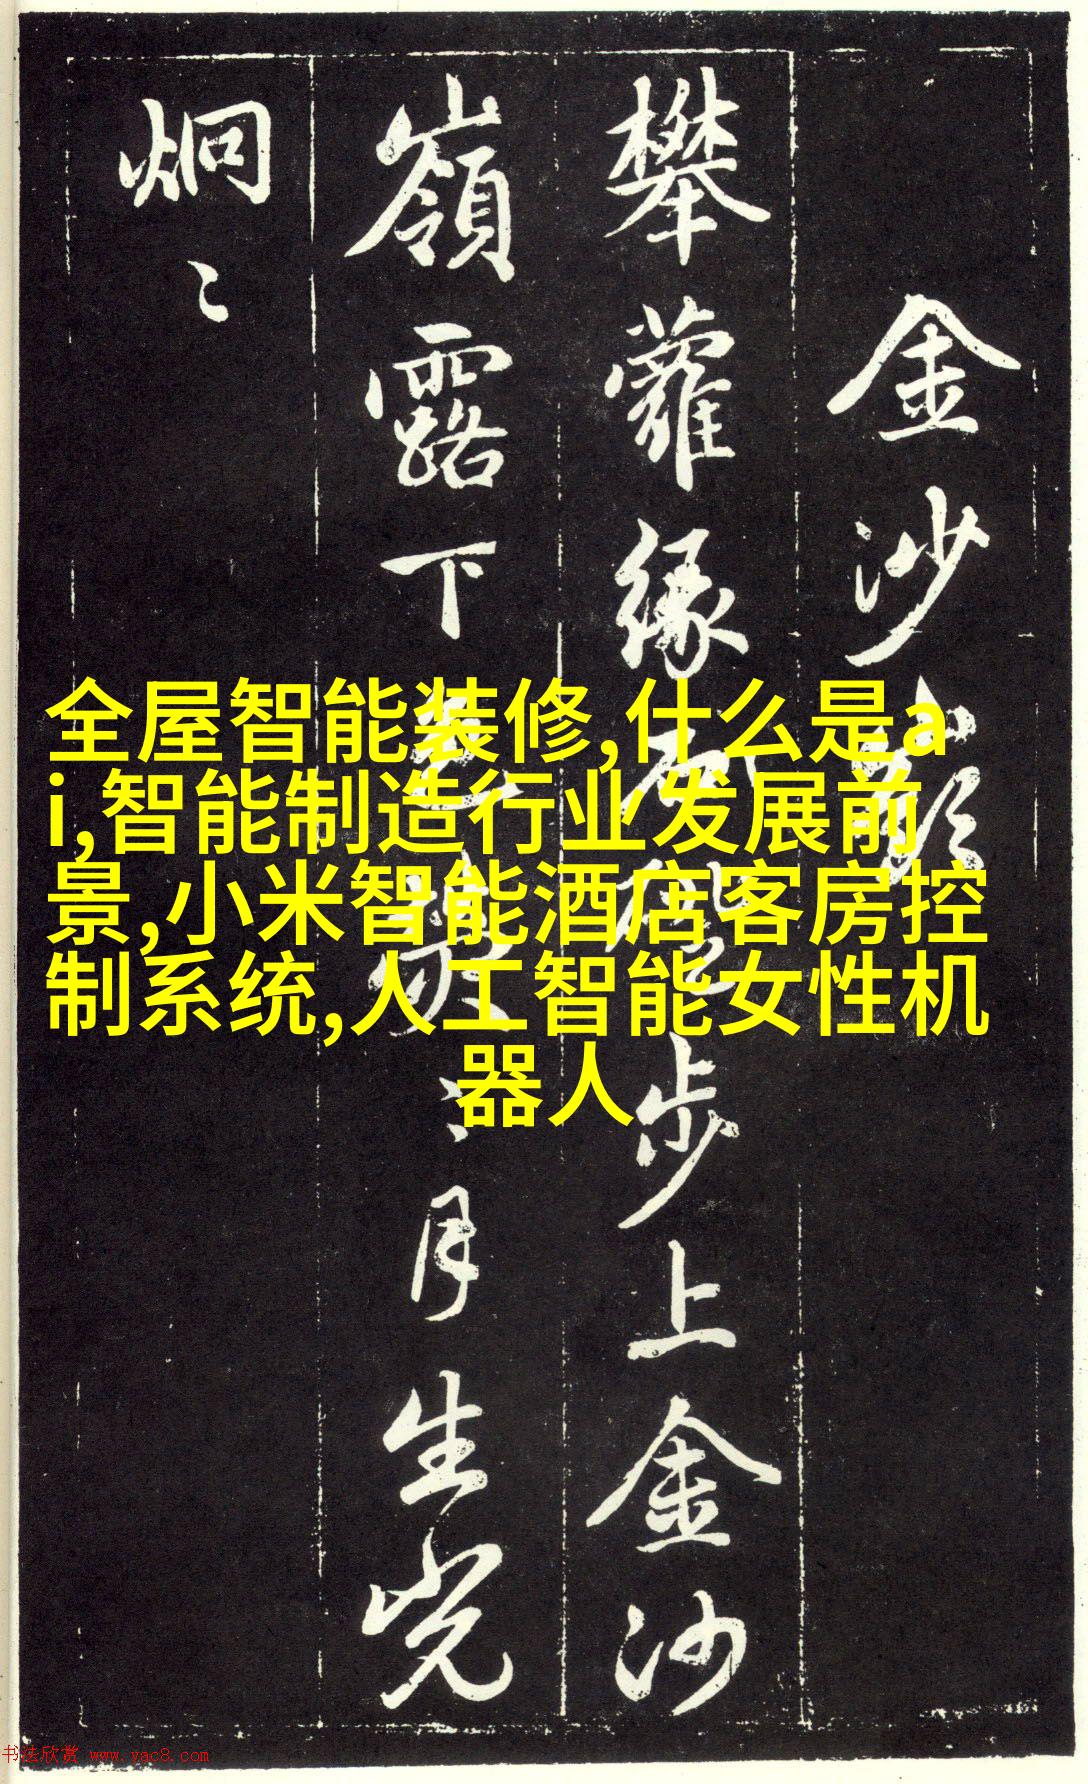 金沙嶺
攀蘿緣石磴步上金沙
嶺露下月生光
炯〻
全屋智能装修,什么是a
i,智能制造行业发展前
景,小米智能酒店客房控
制系统,人工智能女性机
器人
书法欣赏 www.yac8.com